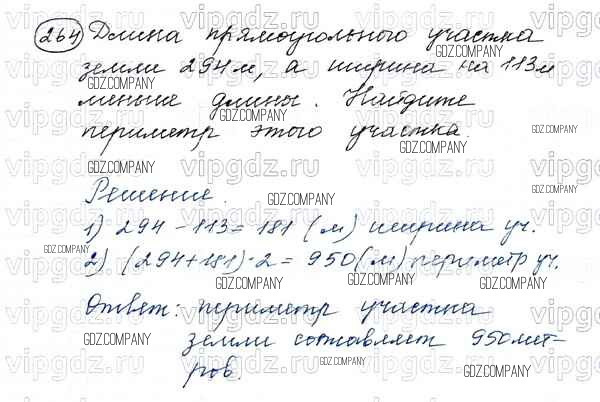 264 Длина прямоугольного участка
земли 294 м, а ширина на 113 м
меньше длины. Найдите
периметр этого участка.
Решение.
1) 294 - 113 = 181 (м) ширина уч.
2) (294+181)·2 = 950 (м) периметр уч.
Ответ: периметр участка
земли составляет 950 мет-
ров.
vipgdz.ru
GDZ.COMPANY